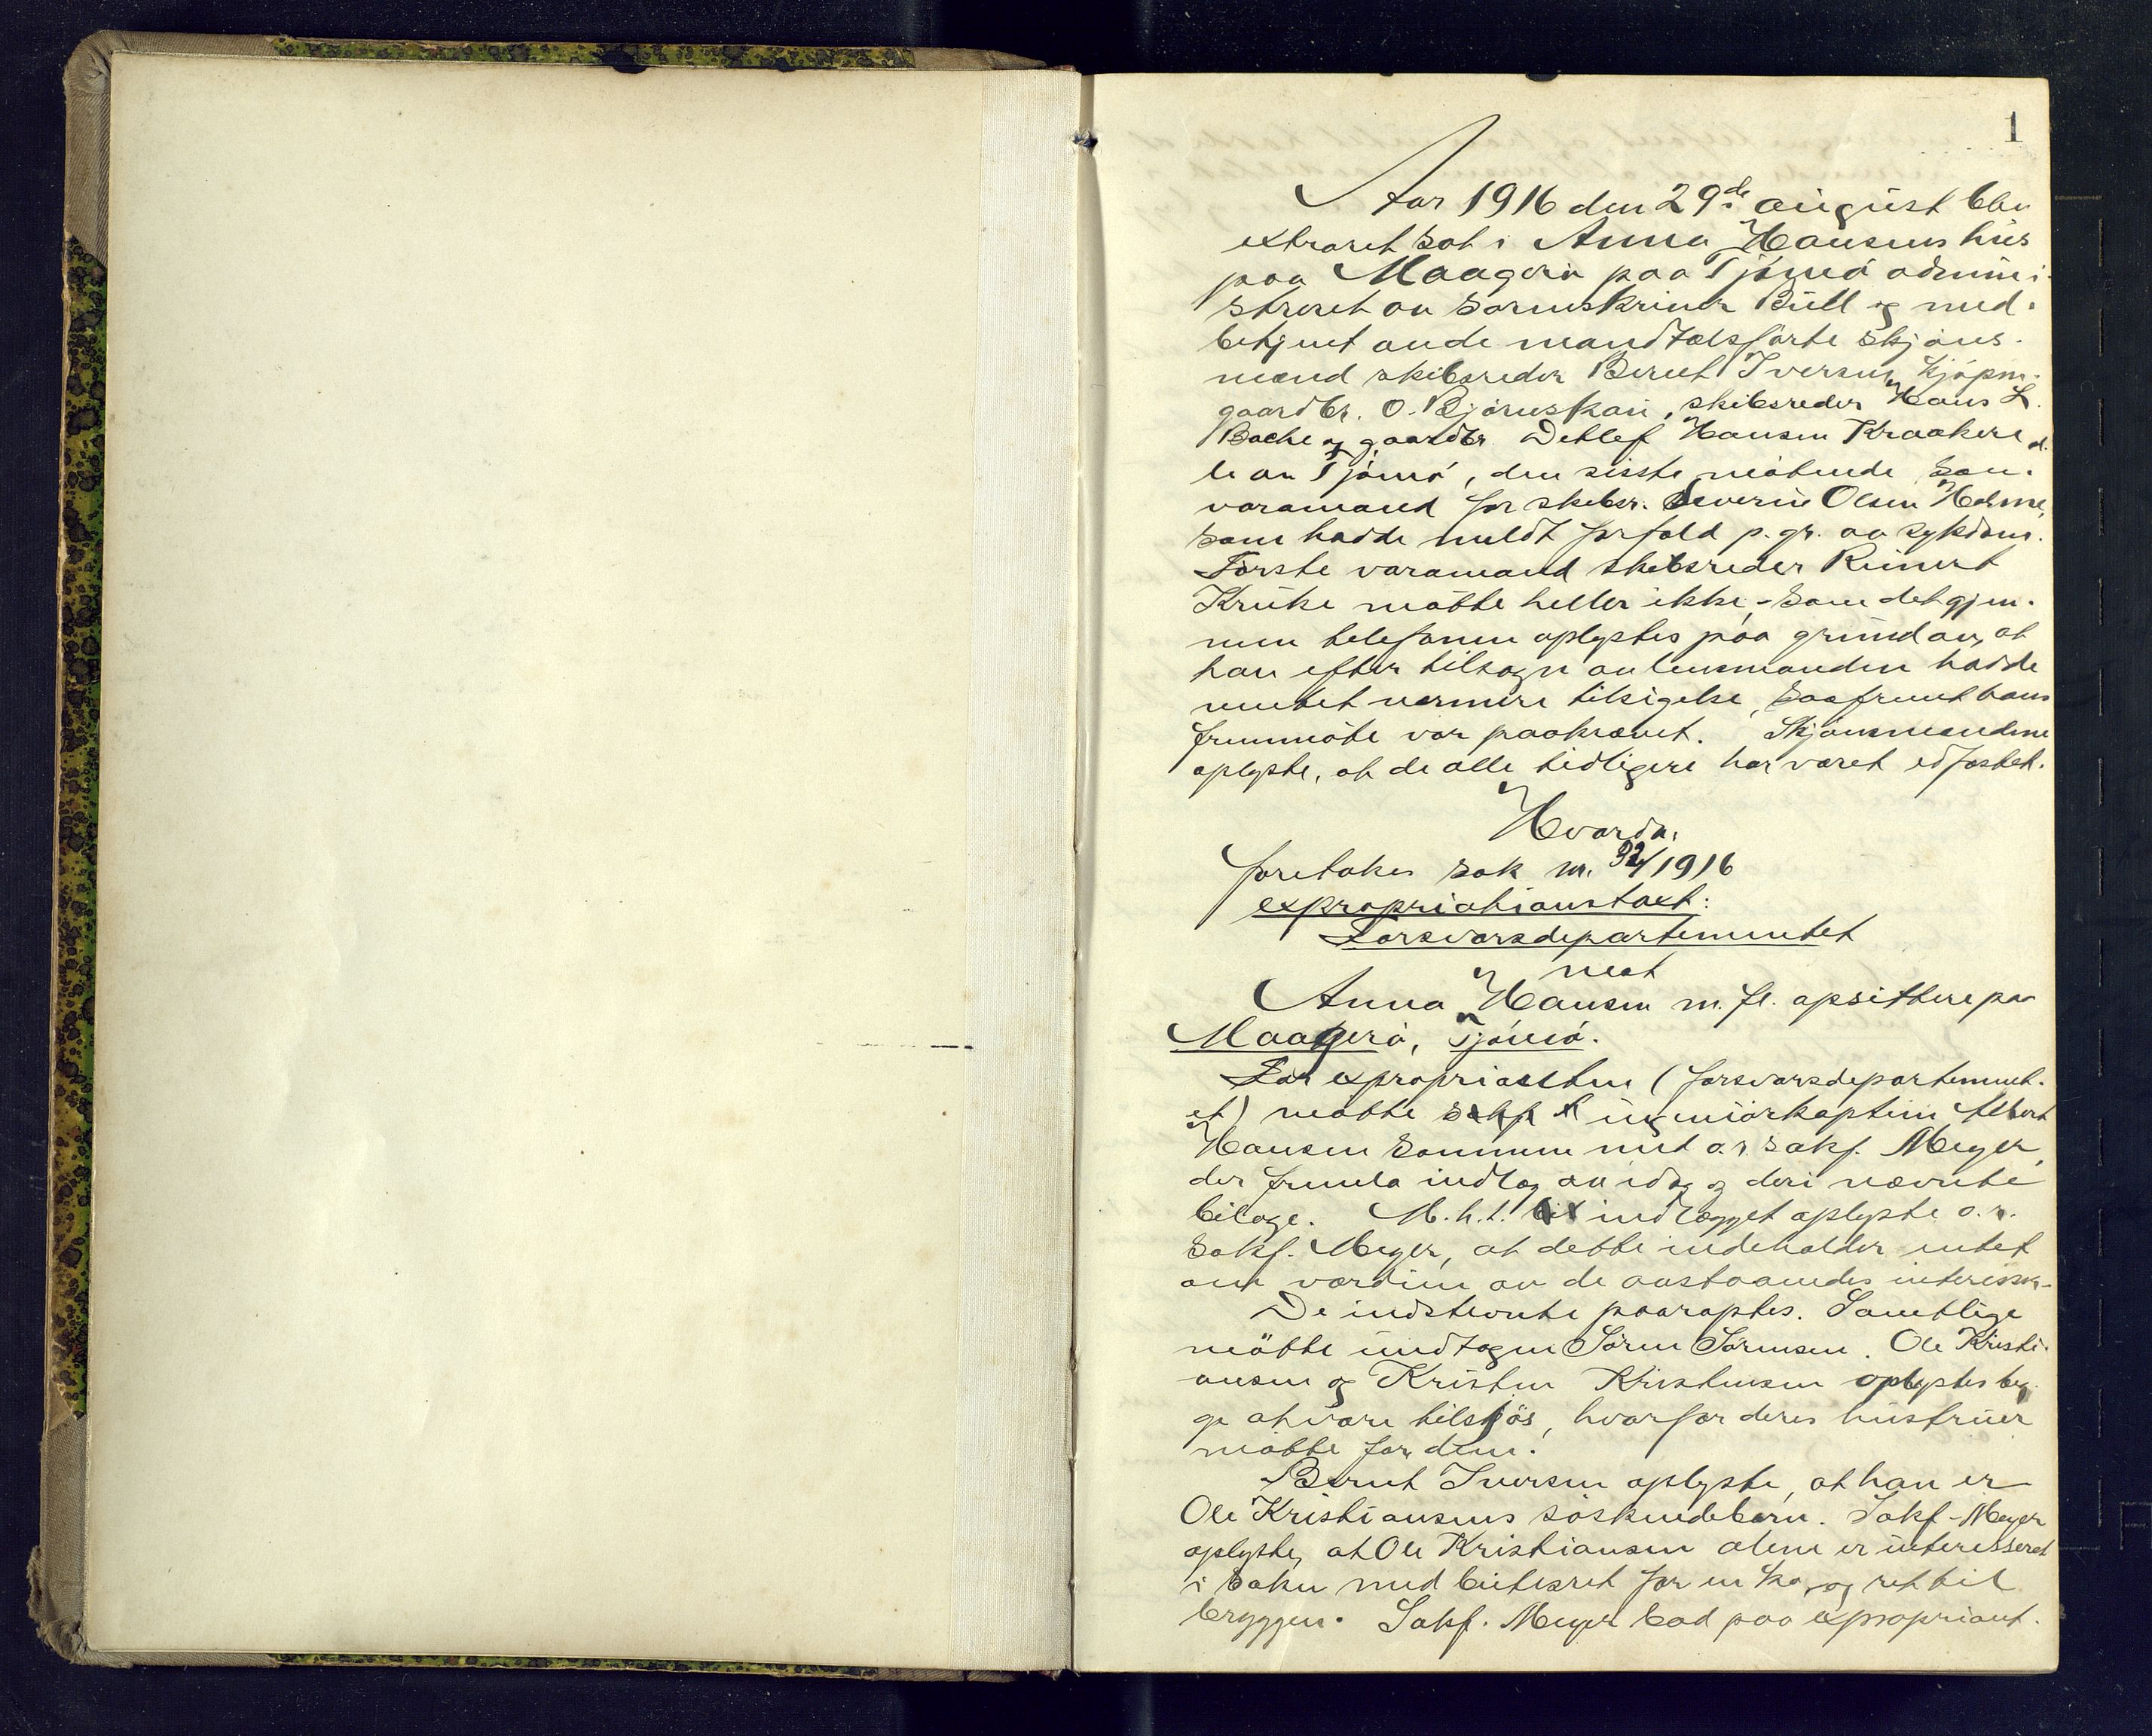 1
Aar 1916 den 29de august blev
extraret sat i Anna Hansens hus
paa Maagerø paa Tjømø admini-
streret av sorenskriver Bull og med-
betjent av de mandtalsførte skjøns-
mænd skibsreder Bernt Iversen, kjøpm.
gaardbr. O. Bjørnskau, skibsreder Hans L.
Bache og gaardbr. Detlef Hansen Kraakere al-
le av Tjømø, den sisste møtende som
varamand for skibsr. Severin Olsen Holme,
som hadde meldt forfald p. gr. av sykdom.
Første varamand skibsreder Reinert
Kruke møtte heller ikke, - som det gjen-
nem telefonen oplystes paa grund av, at
han efter tilsagn av lensmanden hadde
ventet nærmere tilsigelse, saafremt hans
fremmøte var paakrævet. Skjønsmændene
oplyste, at de alle tidligere har været edfæstet.
Hvorda,
foretokes sak nr. 92/1916
expropriationstaxt:
Forsvarsdepartementet
mot
Anna Hansen m. fl. opsittere paa
Maagerø, Tjømø.
For exproprianten (forsvarsdepartement-
et) møtte ingeniørkaptein Albert
Hansen sammen med o.r. sakf. Meyer,
der fremla indlæg av idag og deri nævnte
bilage. M. h. t. indlægget oplyste o.r.
sakf. Meyer, at dette indeholder intet
om værdien av de avstaaendes interesser.
De indstevnte paaroptes. Samtlige
møtte undtagen Søren Sørensen. Ole Kristi-
ansen og Kristen Kristensen oplystes beg-
ge at være tilsjøs, hvorfor deres hustruer
møtte for dem.
Bernt Iversen oplyste, at han er
Ole Kristiansens søskendebarn. Sakf. Meyer
oplyste, at Ole Kristiansen alene er interesseret
i saken med beitesret for en ko, og ret til
bryggen. Sakf. Meyer bad paa expropriant-